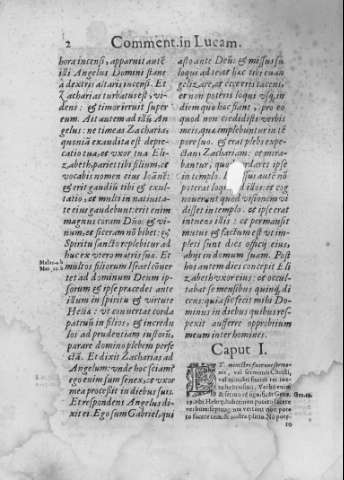 2 Comment. in Lucam.
hora incensi, apparuit autē
illi Angelus Domini stans
à dextris altaris incensi. Et
Zacharias turbatus est, vi-
dens: & timor irruit super
eum. Ait autem ad illū An-
gelus: ne timeas Zacharia,
quoniā exaudita est depre-
catio tua, et vxor tua Eli-
zabeth pariet tibi filium, et
vocabis nomen eius Ioānē:
& erit gaudiū tibi & exul-
tatio, et multi in natiuita-
te eius gaudebunt: erit enim
magnus coram Dño: & vi-
num, et siceram nō bibet: &
Spiritu sancto replebitur ad
huc ex vtero matris suæ. Et
multos filiorum Israel conuer
tet ad dominum Deum ip-
sorum & ipse præcedet ante
illum in spiritu & virtute
Heliæ: vt conuertat corda
patrum in filios, & incredu
los ad prudentiam iustorū,
parare domino plebem perfe
ctā. Et dixit Zacharias ad
Angelum: vnde hoc sciam?
ego enim sum senex, et vxor
mea processit in diebus suis.
Et respondens Angelus di-
xit ei. Ego sum Gabriel, qui
asto ante Deū: & missus sū
loqui ad te, et hæc tibi euan
gelizare, et ecce eris tacens,
et non poteris loqui vsq; in
diem quo hæc fiant, pro eo
quod non credidisti verbis
meis, quæ implebuntur in tē
pore suo. & erat plebs expe-
ctans Zachariam: et mira-
bantur, quod tardaret ipse
in templo. autē nō
poterat loqui ad illos, et cog
nouerunt quod visionem vi
disset in templo. et ipse erat
intuens illis: et permansit
mutus & factum est vt im-
pleti sunt dies officij eius,
abijt in domum suam. Post
hos autem dies concepit Eli
zabeth vxor eius: et occul-
tabat se mensibus quinq; di
cens: quia sic fecit mihi Do-
minus in diebus quibus res-
pexit aufferre opprobrium
meum inter homines.
Caput I.
ET ministri fuerunt sermo-
nis, vel sermonis Christi,